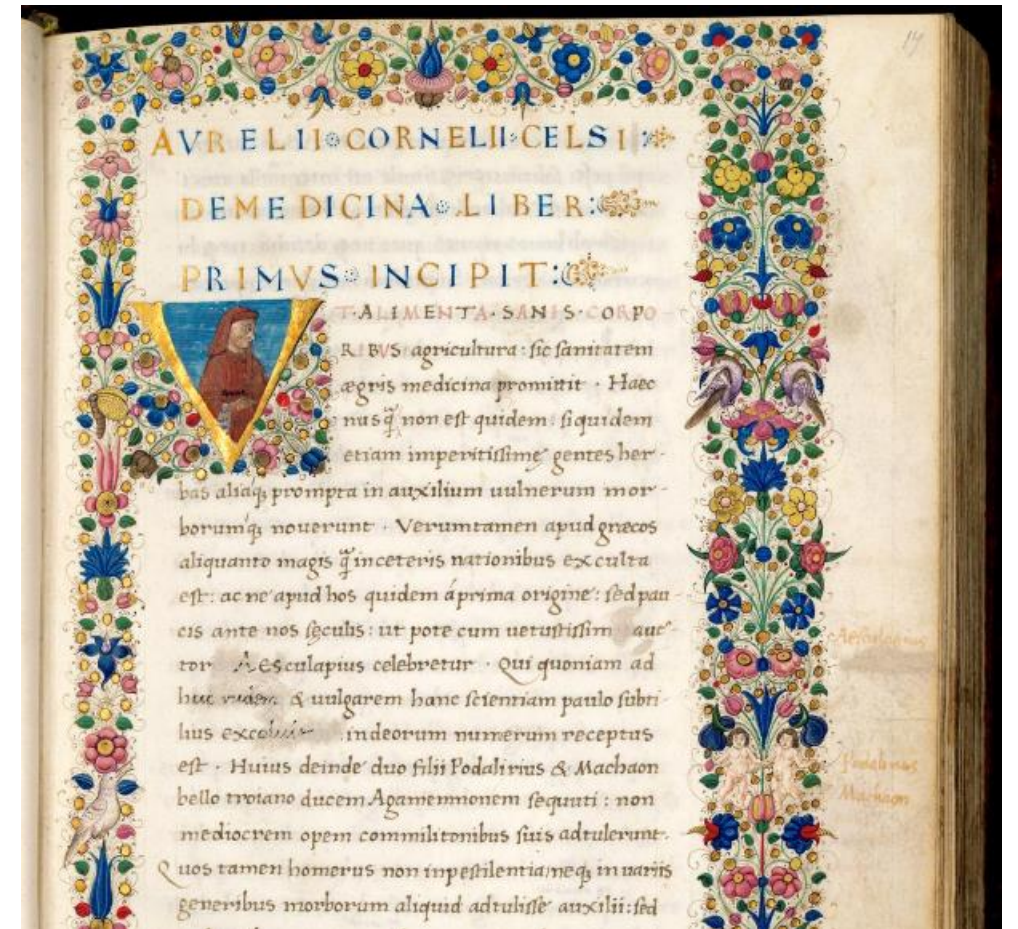 17
AVRELII CORNELII CELSI:
DEMEDICINA LIBER:
PRIMVS INCIPIT:
VT·ALIMENTA·SANIS·CORPO
RIBVS agricultura: sic sanitatem
ægris medicina promittit · Haec
nusq̃ non est quidem: siquidem
etiam imperitissimę gentes her-
bas aliasq; prompta in auxilium uulnerum mor-
borumq; nouerunt · Verumtamen apud græcos
aliquanto magis q̃ in ceteris nationibus exculta
est: ac ne apud hos quidem á prima origine: sed pau-
cis ante nos sęculis: ut pote cum uetustissim auc-
tor AEsculapius celebretur · Qui quoniam ad
huc rudem & uulgarem hanc scientiam paulo subti-
lius excoluit in deorum numerum receptus
est · Huius deinde duo filii Podalirius & Machaon
bello troiano ducem Agamemnonem sequuti: non
mediocrem opem commilitonibus suis adtulerunt.
Quos tamen homerus non in pestilentia neq; in uariis
generibus morborum aliquid adtulisse auxilii: sed
Aesculapius
Podalirius
Machaon